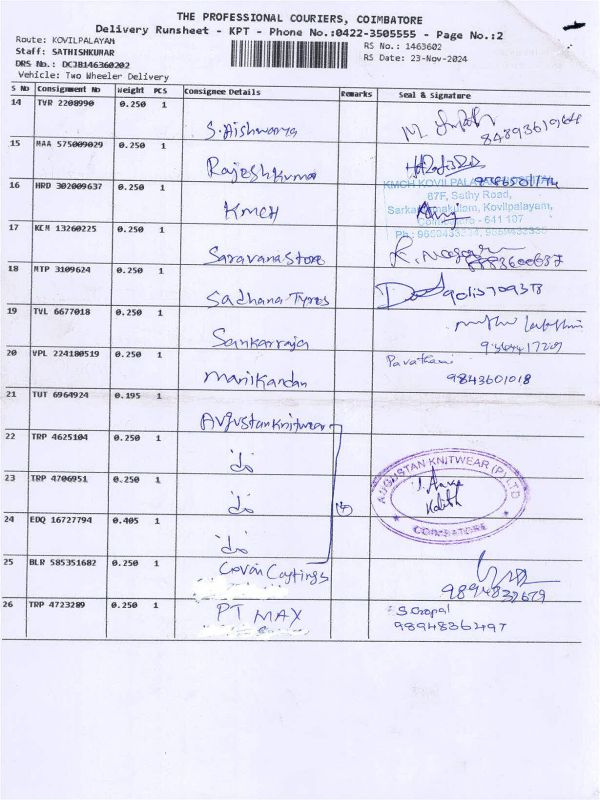 THE PROFESSIONAL COURIERS, COIMBATORE
Delivery Runsheet - KPT - Phone No.:0422-3505555 - Page No.:2
Route: KOVILPALAYAM
Staff: SATHISHKUMAR
DRS No.: DCJB146360202
Vehicle: Two Wheeler Delivery
RS No.: 1463602
RS Date: 23-Nov-2024
S No Consignment No Weight PCS Consignee Details Remarks Seal & signature
14 TVR 2208990 0.250 1 S. Aishwarya
15 MAA 575009029 0.250 1 Rajeshkumar
16 HRD 302009637 0.250 1 KMCH
KMCH KOVILPALAYAM
67F, Sathy Road,
Kovilpalayam,
- 641 107
17 KEM 13260225 0.250 1 Saravana Store
18 MTP 3109624 0.250 1 Sadhana Tyres
19 TVL 6677018 0.250 1 Sankarraja
20 VPL 224180519 0.250 1 Manikandan 9843601018
21 TUT 6964924 0.195 1 Augustan Knitwear
22 TRP 4625104 0.250 1 do
23 TRP 4706951 0.250 1 do
AUGUSTAN KNITWEAR (P) LTD
COIMBATORE
24 EDQ 16727794 0.405 1 do
25 BLR 585351682 0.250 1 Covai Caytings
26 TRP 4723289 0.250 1 PT MAX S. Gopal
9894836497